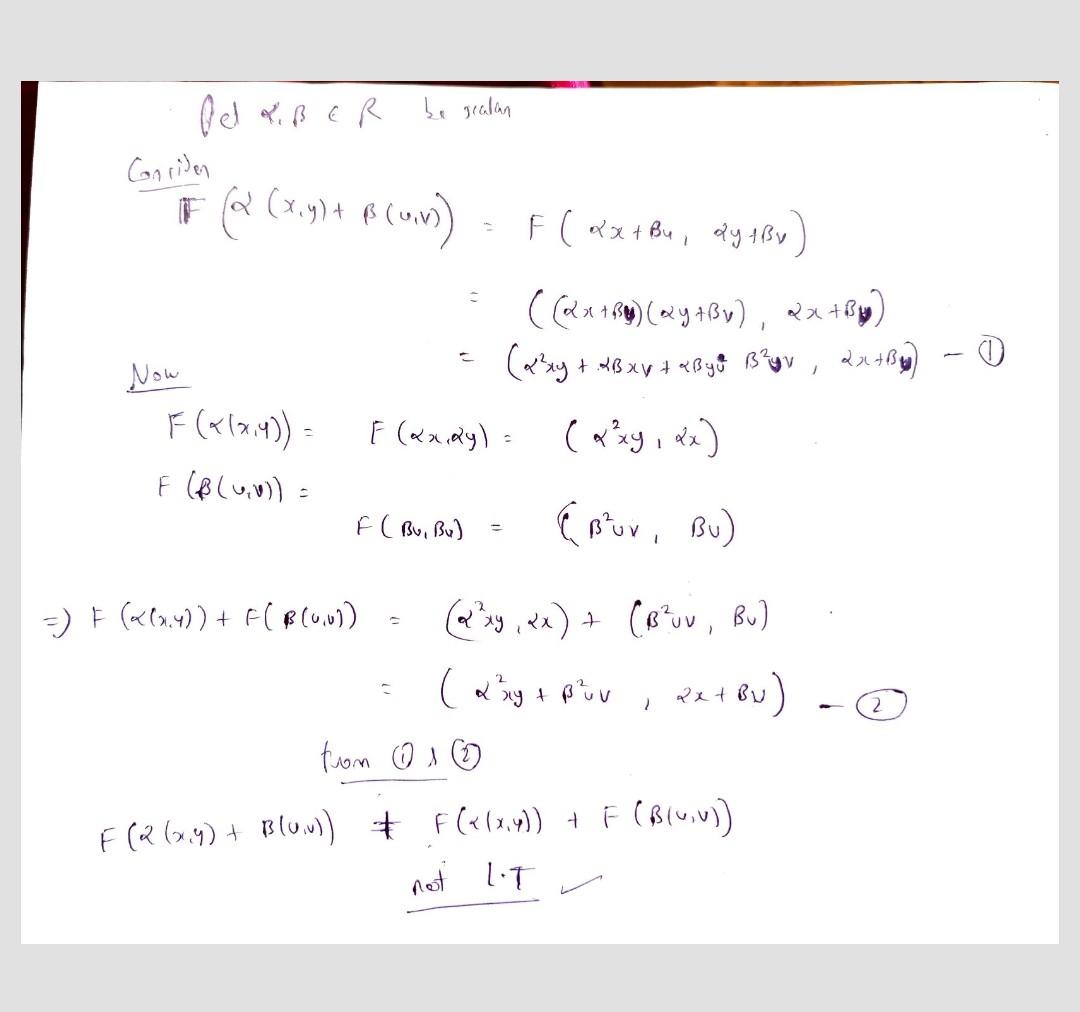 Let α, β ∈ R be scalar
Consider
F (α (x,y) + β (u,v)) = F ( αx + βu, αy + βv )
= ( (αx + βu)(αy + βv), αx + βu )
= (α²xy + αβxv + αβyu β²uv, αx + βu) - ①
Now
F (α(x,y)) = F (αx, αy) = ( α²xy, αx )
F (β(u,v)) =
F ( βu, βv ) = ( β²uv, βu )
=> F (α(x,y)) + F( β(u,v)) = (α²xy, αx) + (β²uv, βu)
= ( α²xy + β²uv, αx + βu ) - ②
from ① & ②
F (α (x,y) + β(u,v)) ≠ F(α(x,y)) + F (β(u,v))
not L.T ✓